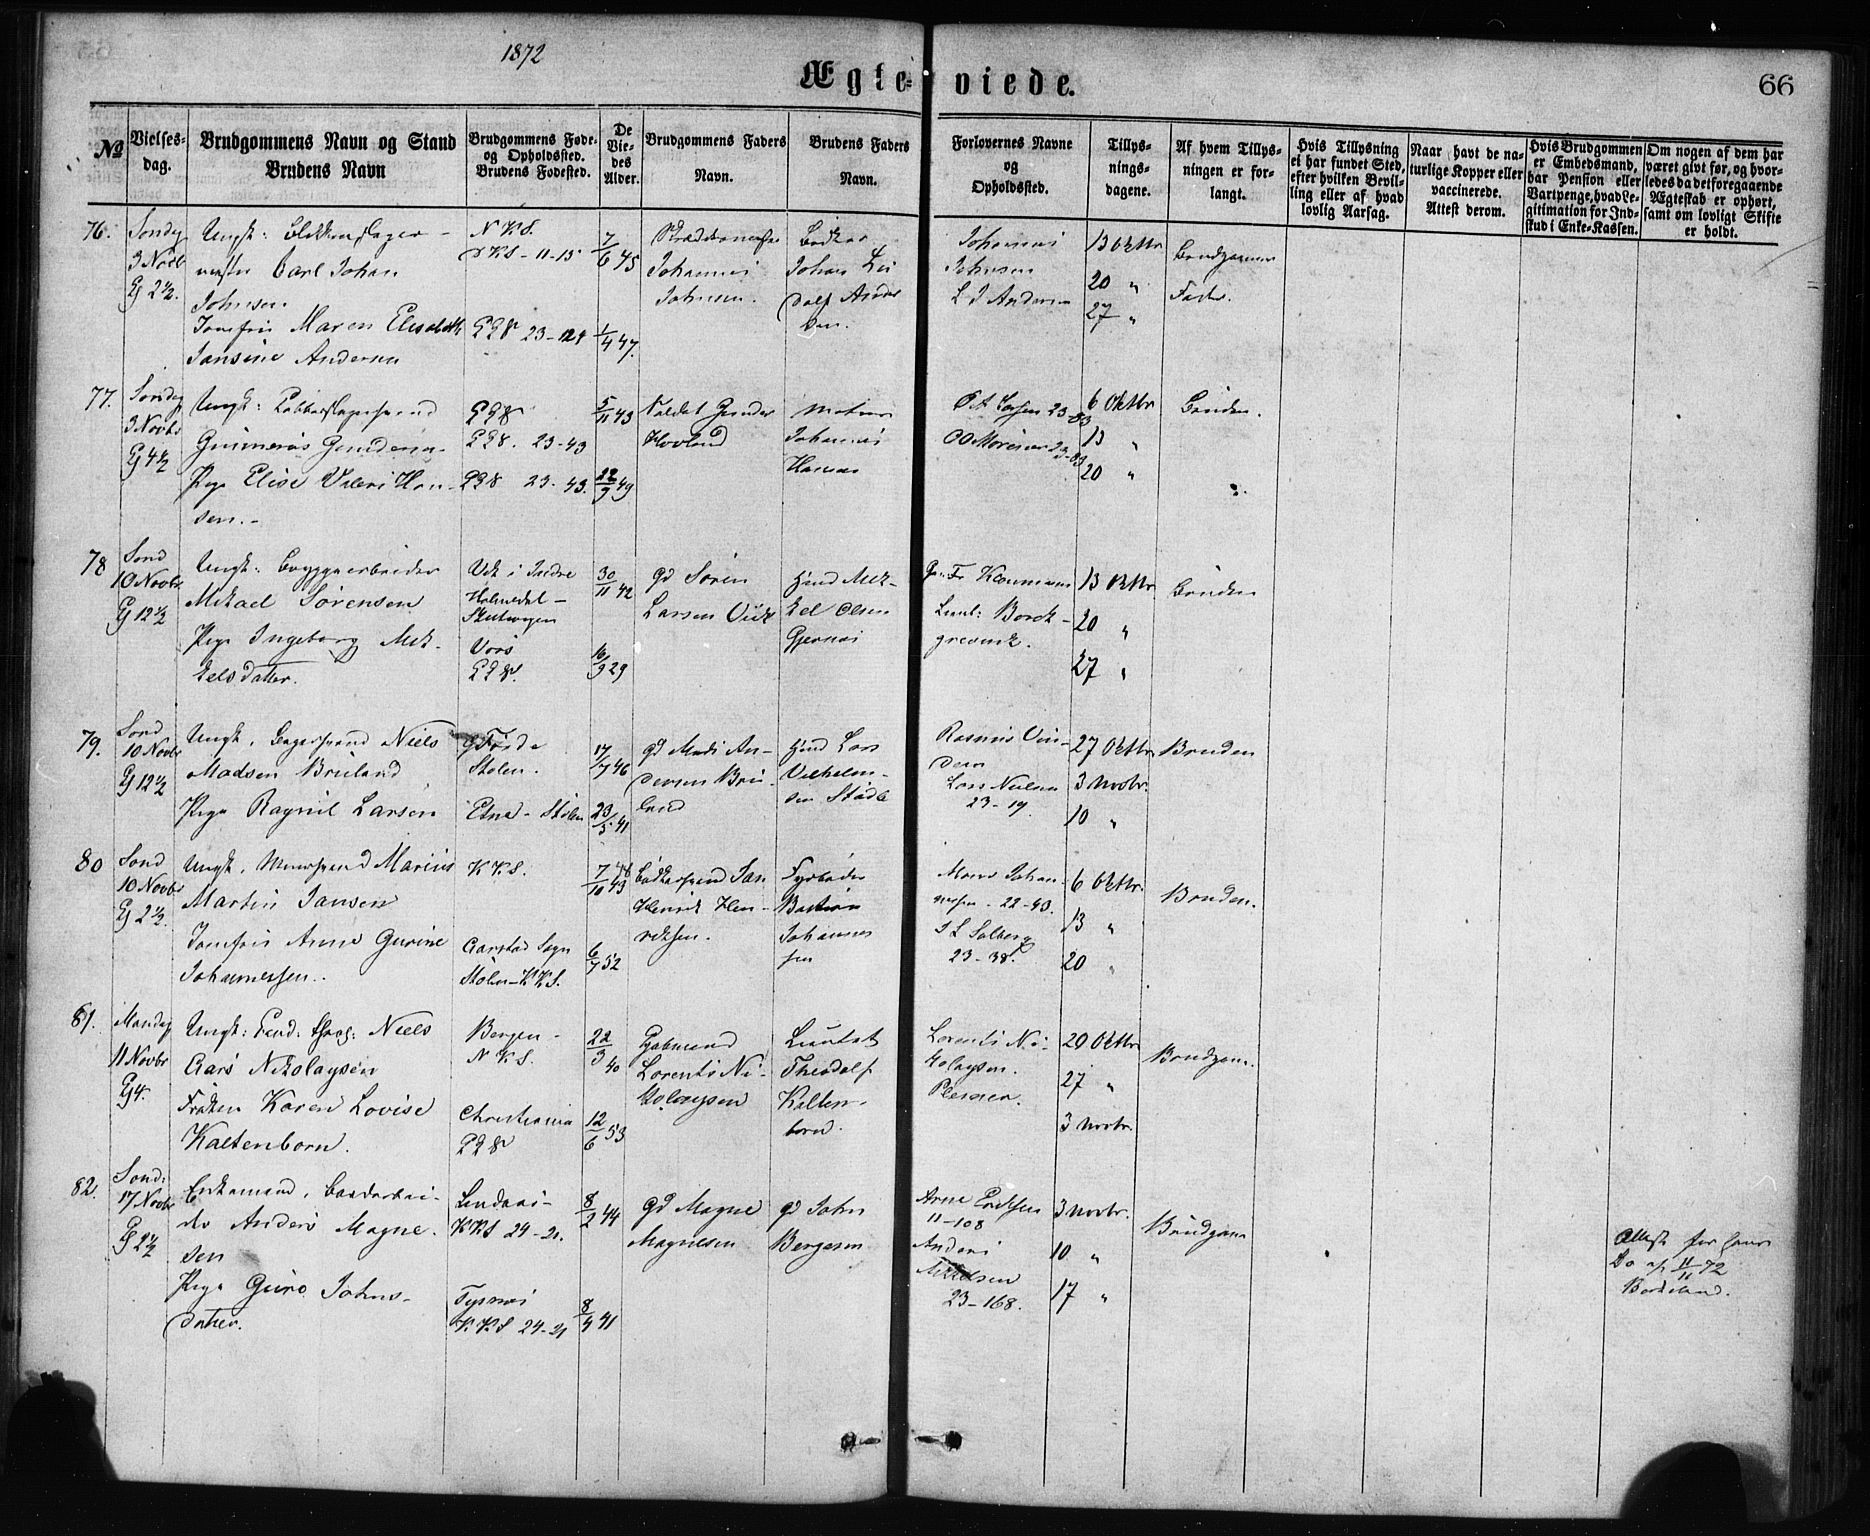 1872
Ægteviede.
66
No
Vielses-
dag.
Brudgommens Navn og Stand
Brudens Navn
Brudgommens Føde-
og Opholdssted.
Brudens Fødested.
De
Vie-
des
Alder.
Brudgommens Faders
Navn.
Brudens Faders
Navn.
Forlovernes Navne
og
Opholdssted.
Tillys-
nings-
dagene.
Af hvem Tillys-
ningen er for-
langt.
Hvis Tillysning
ei har fundet Sted,
efter hvilken Bevil-
ling eller af hvad
lovlig Aarsag.
Naar havt de na-
turlige Kopper eller
vaccinerede.
Attest derom.
Hvis Brudgommen
er Embedsmand,
har Pension eller
Vartpenge, hvad Le-
gitimation for Ind-
skud i Enke-Kassen.
Om nogen af dem har
været givt før, og hvor-
ledes da det foregaaende
Ægteskab er ophørt,
samt om lovligt Skifte
er holdt.
76.
Søndag
3 Novb
G 2½.
Ungk: Blikkenslager-
mester Carl Johan
Johnsen
Jomfru Maren Elisabeth
Jansine Andersen
N K S.
N K S - 11-15
23-124
7/6 45
1/4 47.
Johannes
Johnsen.
Bødker
Johan Lu
dolf Ander
sen.
Johannes
Johnsen
L J Andersen
13 Oktbr
20 "
27 "
Brudgommens
Fader.
77.
Søndag
3 Novbr
G 4½
Ungk:
Gunnerius Gundersen
Pige Elise Valeri Han-
sen.-
23-43
23-43.
5/11 43
22/9 49
Hovland
Matros
Johannes
Hansen
23-83
23-83
6 Oktbr
13 "
20 "
Bruden.
78
Sønd
10 Novbr
G 12½
Ungk: Bryggearbeider
Mikael Sørensen
Pige Ingeborg Mik-
kelsdatter.
Vik i Indre
Holmedal -
Skutevigen
Voss
30/11 42
16/9 29
Gd Søren
Larsen Viik
Hmd Mik-
kel Olsen
Gjernes
13 Oktbr
20 "
27 "
Bruden
79.
Sønd
10 Novbr
G 12½
Ungk. Bagersvend Niels
Madsen Bruland
Pige Ragnil Larsen
Førde
Stølen.
Etne - Stølen
17/7 46
23/5 41
Gd Mads An-
dersen Bru-
land
Hmd Lars
Vilhelm-
sen Stødle
Rasmus Vin-
Lars Nielsen
23-19.
27 Oktbr
3 Novbr.
10 "
Bruden
80
Sønd
10 Novbr
G 2½.
Ungk. Murersvend Marius
Martin Jansen
Jomfru Anne Gurine
Johannessen.
K K S.
Stølen - K K S.
7/10 43
6/7 52
Bødkersvend Jan
Henrik Hen-
riksen.
Fyrbøder
Bastian
Johannes
sen
Mons Johan-
nessen - 22-43.
S L Solberg
23-38.
6 Oktbr.
13 "
20 "
Bruden.
81.
Mandag
11 Novbr
G 4.
Ungk: Niels
Aars Nikolaysen
Frøken Karen Lovise
Kaltenborn.
Bergen -
N K S.
Christiania
22/3 40
12/6 53
Lorents Ni-
kolaysen
Theodolf
Kalten-
born.
Lorents Ni-
kolaysen.
20 Oktbr
27 "
3 Novbr.
Brudgom.
82.
Sønd:
17 Novbr
G 2½
Enkemand, Baadarbei-
der Anders Magne-
sen
Pige Guro Johns-
datter.
Lindaas-
K K S 24-21.
Tysnæs
K K S 24-21
8/2 44
8/4 41
Gd Magne
Magnesen
Gd John
Bergesen
Arne
11-108
Anders
Mikkelsen
23-168.
3 Novbr.
10 "
17 "
Brudgom
Attest for
11/11 72